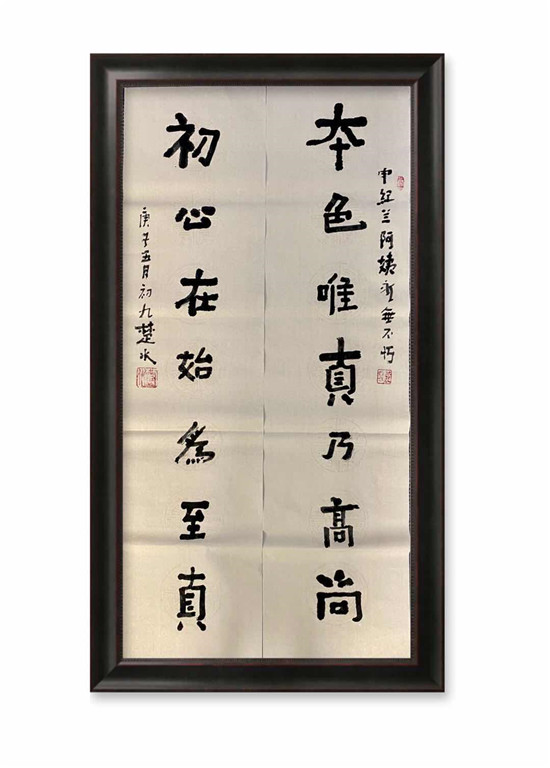 申紅兰阿姨無不
本色唯真乃高尚
初心在始為至真
庚子五月初九楚水